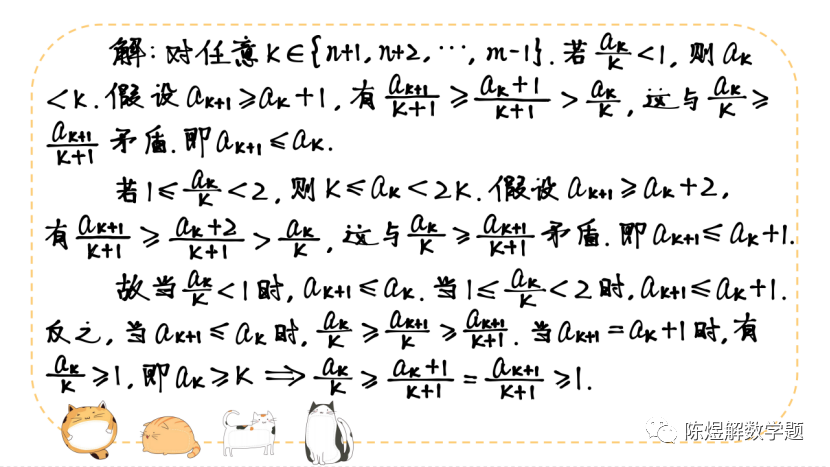 解:对任意K∈{n+1,n+2,…,m-1}.若a_K/K<1,则a_K
<K.假设a_{K+1}≥a_K+1,有a_{K+1}/(K+1)≥(a_K+1)/(K+1)>a_K/K,这与a_K/K≥
a_{K+1}/(K+1)矛盾.即a_{K+1}≤a_K.
若1≤a_K/K<2,则K≤a_K<2K.假设a_{K+1}≥a_K+2,
有a_{K+1}/(K+1)≥(a_K+2)/(K+1)>a_K/K,这与a_K/K≥a_{K+1}/(K+1)矛盾.即a_{K+1}≤a_K+1.
故当a_K/K<1时,a_{K+1}≤a_K.当1≤a_K/K<2时,a_{K+1}≤a_K+1.
反之,当a_{K+1}≤a_K时,a_K/K≥a_{K+1}/K≥a_{K+1}/(K+1).当a_{K+1}=a_K+1时,有
a_K/K≥1,即a_K≥K⟹a_K/K≥(a_K+1)/(K+1)=a_{K+1}/(K+1)≥1.
陈煜解数学题